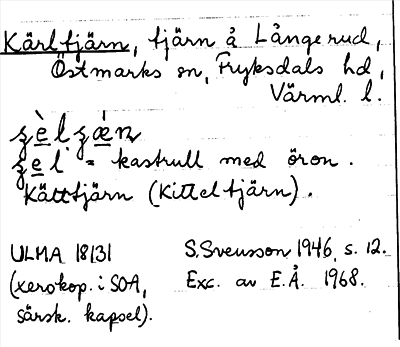 Kärltjärn, tjärn å Långerud,
Östmarks sn, Fryksdals hd,
Värml. l.
= kastrull med öron.
Kätttjärn (Kitteltjärn).
ULMA 18131 S. Svensson 1946, s. 12.
(xerokop. i SOA, Exc. av E.Å. 1968.
särsk. kapsel).